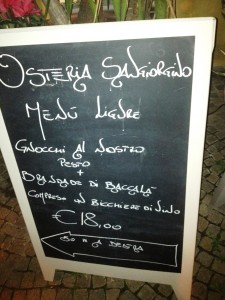 OSTERIA SANGIORGINO
MENÙ LIGURE
GNOCCHI AL NOSTRO
PESTO
+
BRANDADE DI BACCALÀ
COMPRESO UN BICCHIERE DI VINO
€ 18,00
50 M A DESTRA